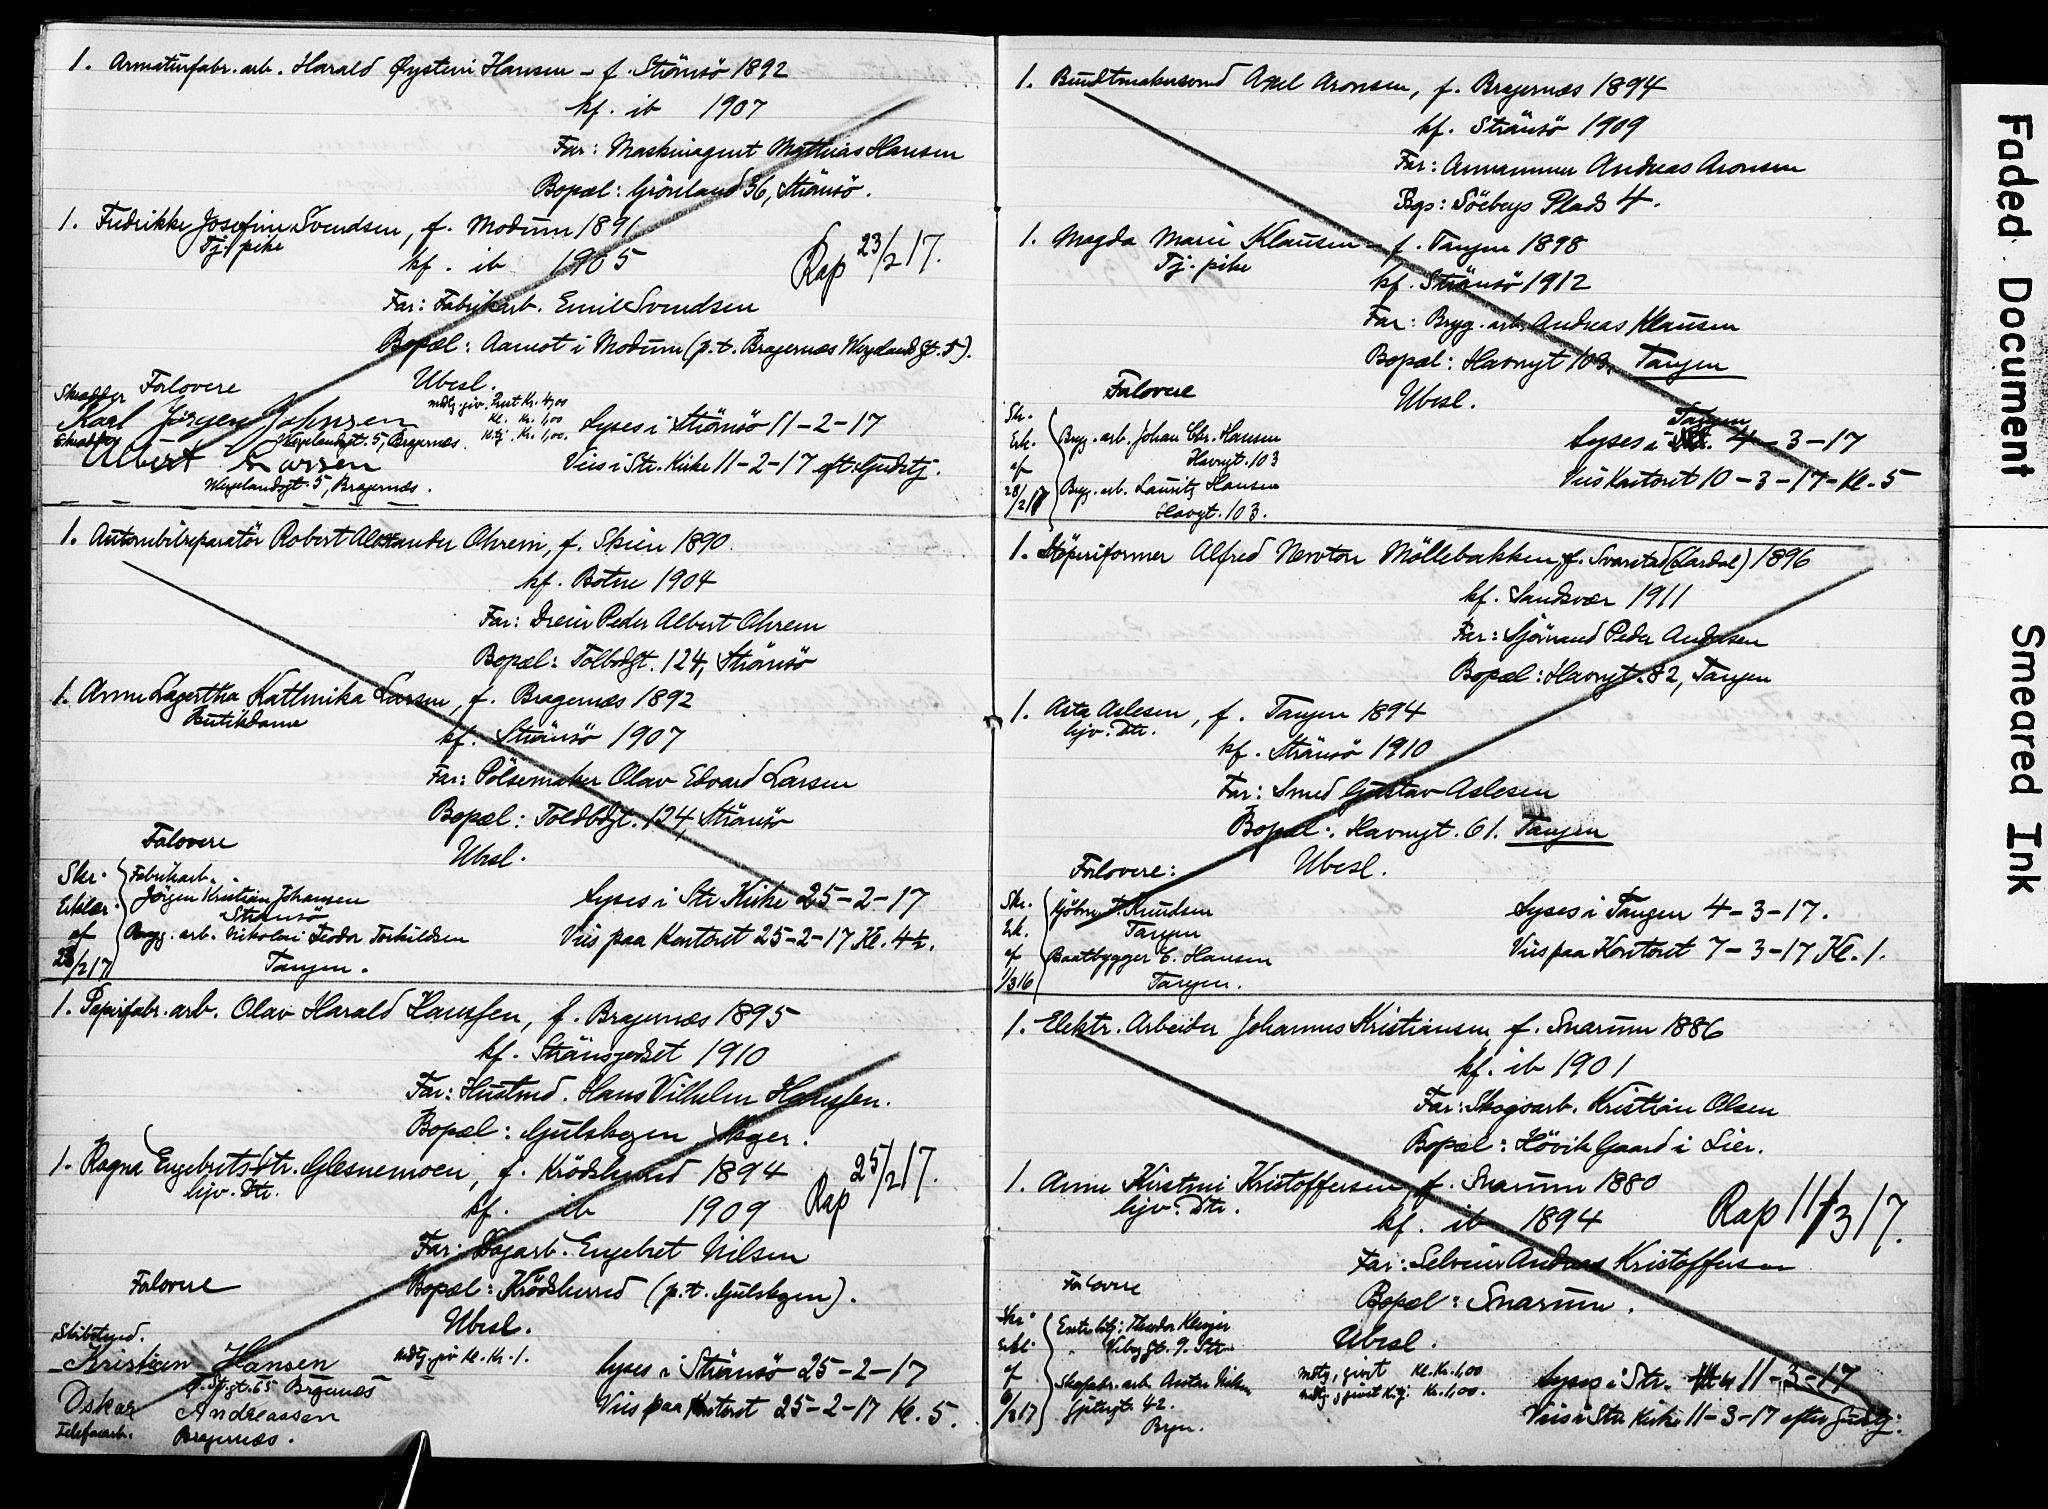 1. Armaturfabr. arb. Harald Øystein Hansen – f. Strömsö 1892
kf. ib 1907
Far: Maskinagent Mathias Hansen
Bopæl: Grönland 36, Strömsö.
1. Fredrikke Josefine Svendsen, f. Modum 1891
Tj. pike
kf. ib 1905
Rap 23/2 17.
Far: Fabrikarb. Emil Svendsen
Bopæl: Aamot i Modum (p.t. Bragernæs Wergelandsgt. 5).
Forlovere
Ubesl.
Skrædder
Karl Jörgen Johnsen
Wergelandsgt. 5, Bragernæs.
mdtg. giv. Prest Kr. 4,00
Kl. Kr. 1,00
K.tj. Kr. 1,00.
Lyses i Strömsö 11-2-17
Skrædder
Albert Larsen
Wergelandsgt. 5, Bragernæs.
Vies i Str. Kirke 11-2-17 eft. Gudstj.
1. Automobilreparatör Robert Alexander Ahrem, f. Skien 1890.
kf. Botne 1904
Far: Dreier Peder Albert Ahrem
Bopæl: Tolbodgt. 124, Strömsö
1. Anne Lagertha Kathinka Larsen, f. Bragernæs 1892
Butikdame
kf. Strömsö 1907
Far: Pölsemaker Olav Edvard Larsen
Bopæl: Toldbdgt. 124, Strömsö
Forlovere
Ubesl.
Skr.
Erklær.
af
/2 17
Fabrikarb.
Jörgen Kristian Johansen
Strömsö
Bryg. arb. Nikolai Teodor Torkildsen
Tangen.
Lyses i Str. Kirke 25-2-17
Vies paa Kontoret 25-2-17 Kl. 4½.
1. Papirfabr. arb. Olav Harald Hanssen, f. Bragernæs 1895
kf. Strömsgodset 1910
Far: Hustmd. Hans Vilhelm Hanssen.
Bopæl: Gulskogen, Skoger.
1. Ragna Engebretsdtr. Glesnemoen, f. Krödsherred 1894
hjv. Dtr.
kf. ib 1909
Rap 25/2 17.
Far: Dagarb. Engebret Nilsen
Forlovere
Bopæl: Krödsherred (p.t. Gulskogen).
Ubesl.
Skibstmd.
Kristian Hansen
65 Bragernæs
mdtg. giv Kl. Kr. 1.
Lyses i Strömsö 25-2-17
Oskar Andreassen
Telefonarb. Bragernæs.
Vies paa Kontoret 25-2-17 Kl. 5.
1. Bundtmakersvend Axel Aronsen, f. Bragernæs 1894
kf. Strömsö 1909
Far: Annammer Andreas Aronsen
Bgs: Söebergs Plads 4.
1. Magda Marie Klausen – f. Tangen 1898
Tj. pike
kf. Strömsö 1912
Far: Bryg. arb. Andreas Klausen
Bopæl: Havnegt 103, Tangen
Forlovere
Ubesl.
Skr.
Erk.
af
28/2 17
Bryg. arb. Johan Chr. Hansen
Havnegt. 103
Bryg. arb. Lauritz Hansen
Havgt. 103.
Tangen
Lyses i 4-3-17
Vies Kontoret 10-3-17-Kl. 5
1. Stöperiformer Alfred Newton Möllebakken, f. Svarstad (Lardal) 1896
kf. Sandsvær 1911
Far: Sjömand Peder Andersen
Bopæl: Havnegt. 82, Tangen
1. Asta Aslesen, f. Tangen 1894
hjv. Dtr.
kf. Strömsö 1910
Far: Smed Gustav Aslesen
Bopæl: Havnegt. 61. Tangen
Forlovere:
Ubesl.
Skr.
Erk.
af
1/3 16
Kjöbm. T. Knudsen
Tangen
Baatbygger E. Hansen
Tangen.
Lyses i Tangen 4-3-17.
Vies paa Kontoret 7-3-17 Kl. 1.
1. Elektr. Arbeider Johannes Kristiansen, f. Snarum 1886
kf. ib 1901
Far: Skogsarb. Kristian Olsen
Bopæl: Hövik Gaard i Lier.
1. Anne Kirstine Kristoffersen, f. Snarum 1880
hjv. Dtr.
kf. ib 1894
Rap 11/3 17.
Far: Selveier Andreas Kristoffersen
Forlovere
Bopæl: Snarum.
Ubesl.
Skr.
erkl.
af
/3 17
Theodor
Viborg gt. 9. Str.
Skofabr. arb. Anstar Nilsen
42.
Byen.
mdtg, givt Kl. Kr. 1,00
mdtg, givet K.tj. Kr. 1,00.
Lyses i Str. 11-3-17
Vies i Str. Kirke 11-3-17 efter Gudstj.
Faded Document
Smeared Ink